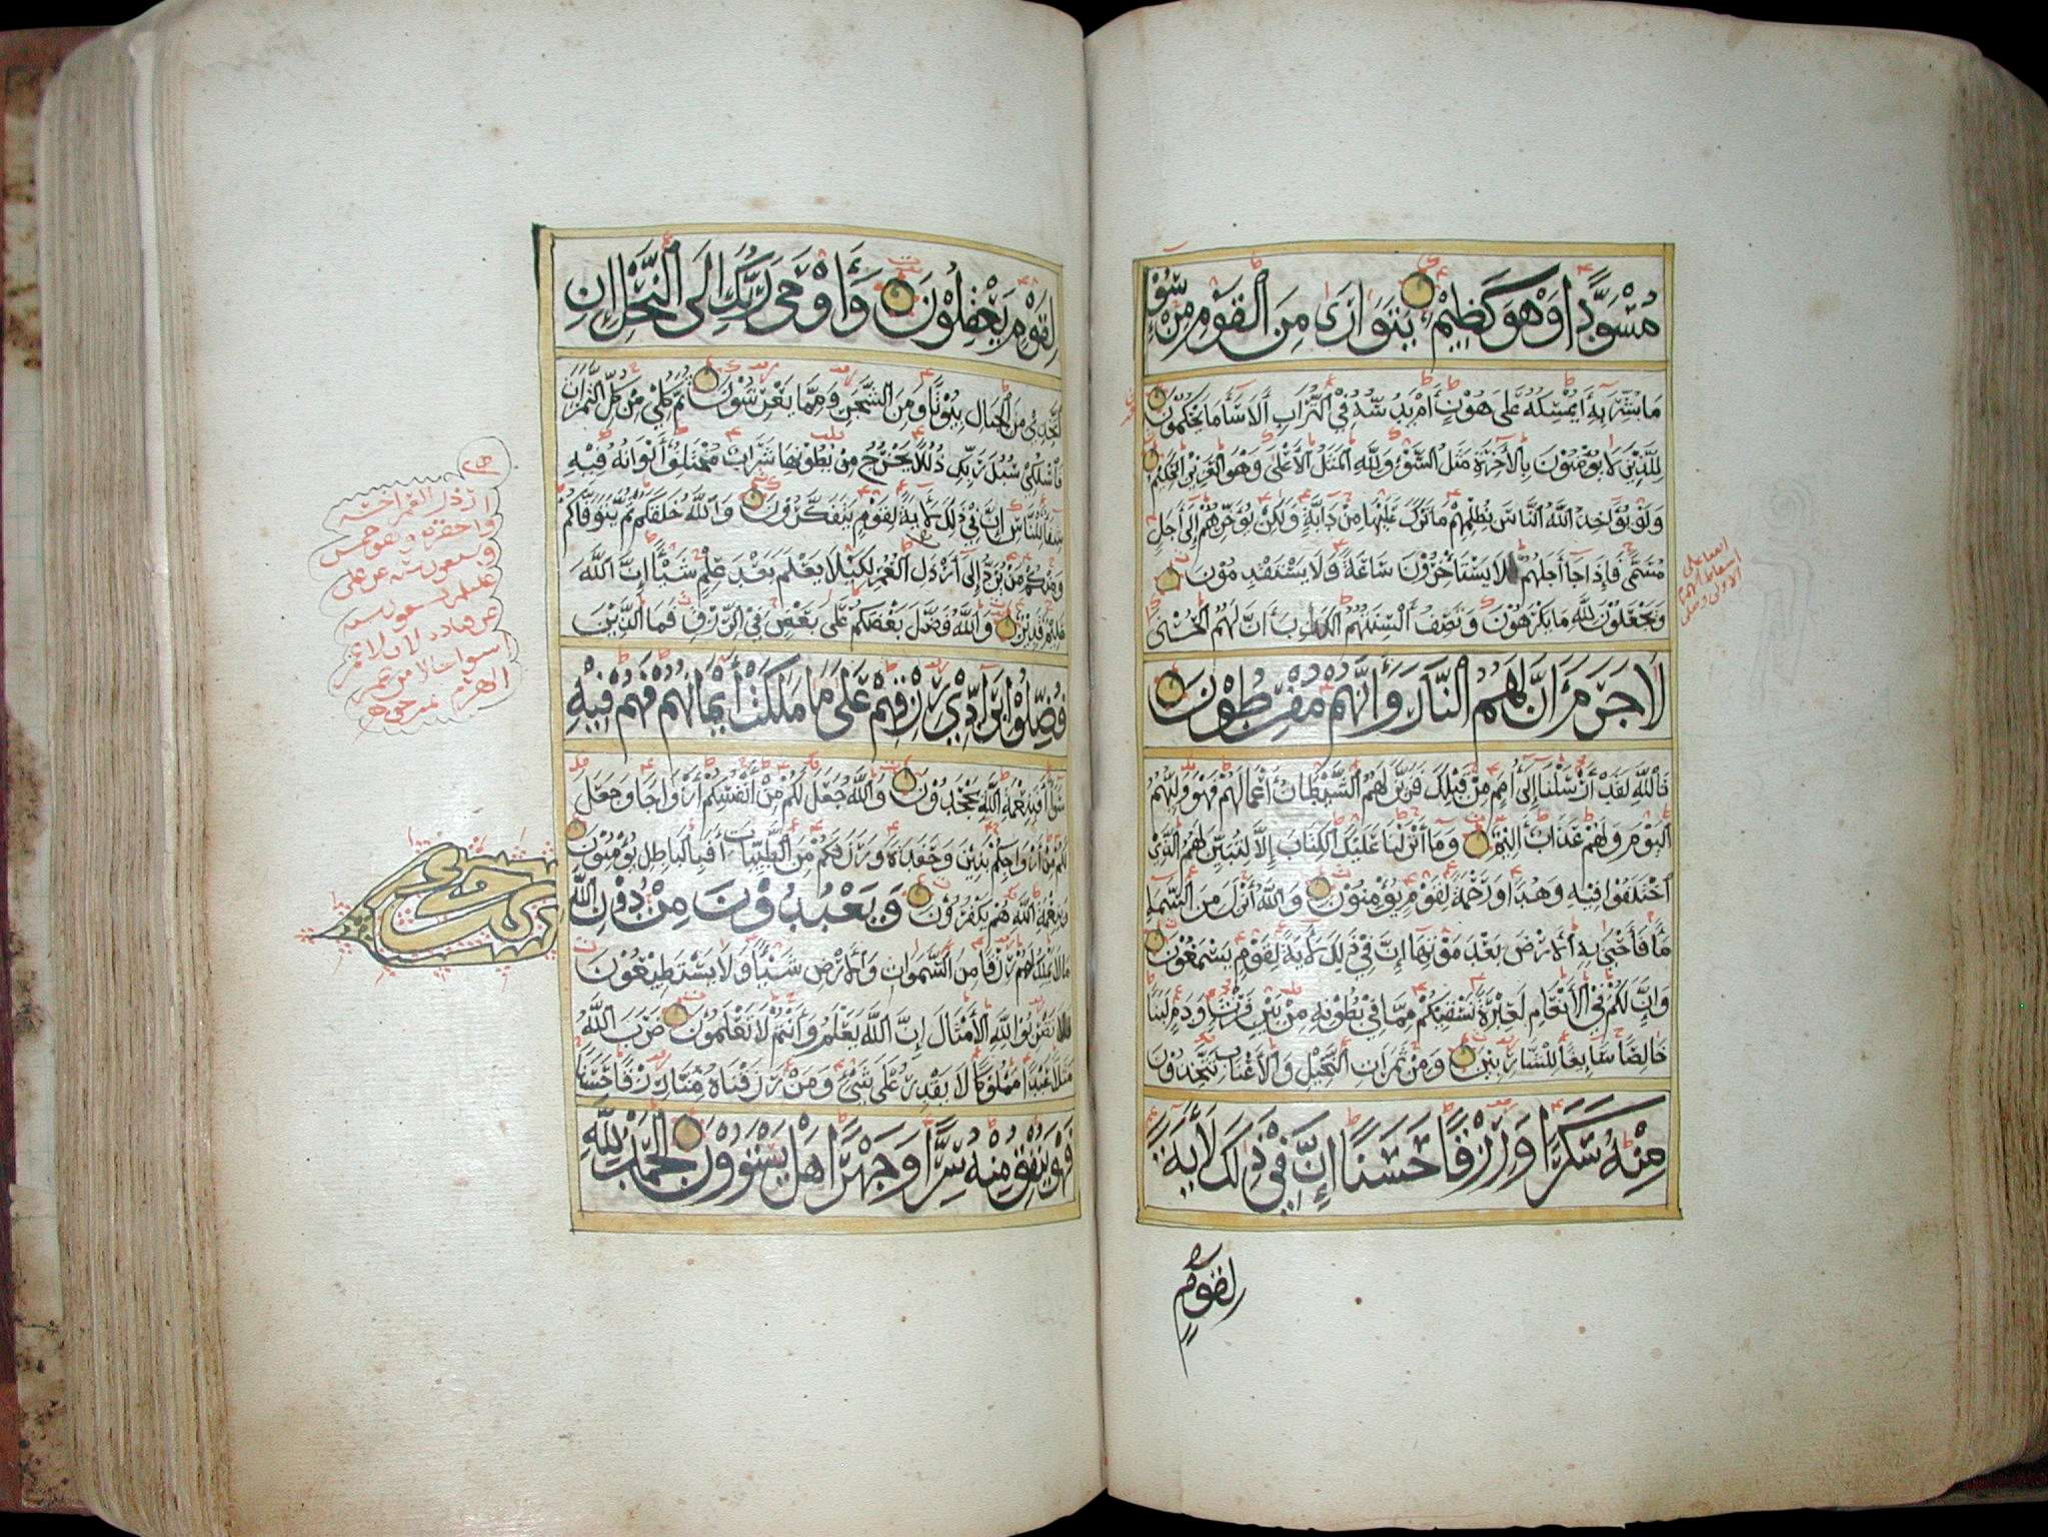 مُسْوَدًّا وَهُوَ كَظِيمٌ يَتَوَارَىٰ مِنَ الْقَوْمِ مِنْ سُوءِ
مَا بُشِّرَ بِهِ أَيُمْسِكُهُ عَلَى هُونٍ أَمْ يَدُسُّهُ فِي التُّرَابِ أَلَا سَاءَ مَا يَحْكُمُونَ
لِلَّذِينَ لَا يُؤْمِنُونَ بِالْآخِرَةِ مَثَلُ السَّوْءِ وَلِلَّهِ الْمَثَلُ الْأَعْلَى وَهُوَ الْعَزِيزُ الْحَكِيمُ
وَلَوْ يُؤَاخِذُ اللَّهُ النَّاسَ بِظُلْمِهِمْ مَا تَرَكَ عَلَيْهَا مِنْ دَابَّةٍ وَلَكِنْ يُؤَخِّرُهُمْ إِلَى أَجَلٍ
مُسَمًّى فَإِذَا جَاءَ أَجَلُهُمْ لَا يَسْتَأْخِرُونَ سَاعَةً وَلَا يَسْتَقْدِمُونَ
وَيَجْعَلُونَ لِلَّهِ مَا يَكْرَهُونَ وَتَصِفُ أَلْسِنَتُهُمُ الْكَذِبَ أَنَّ لَهُمُ الْحُسْنَى
لَا جَرَمَ أَنَّ لَهُمُ النَّارَ وَأَنَّهُمْ مُفْرَطُونَ
تَاللَّهِ لَقَدْ أَرْسَلْنَا إِلَى أُمَمٍ مِنْ قَبْلِكَ فَزَيَّنَ لَهُمُ الشَّيْطَانُ أَعْمَالَهُمْ فَهُوَ وَلِيُّهُمُ
الْيَوْمَ وَلَهُمْ عَذَابٌ أَلِيمٌ وَمَا أَنْزَلْنَا عَلَيْكَ الْكِتَابَ إِلَّا لِتُبَيِّنَ لَهُمُ الَّذِي
اخْتَلَفُوا فِيهِ وَهُدًى وَرَحْمَةً لِقَوْمٍ يُؤْمِنُونَ وَاللَّهُ أَنْزَلَ مِنَ السَّمَاءِ
مَاءً فَأَحْيَى بِهِ الْأَرْضَ بَعْدَ مَوْتِهَا إِنَّ فِي ذَلِكَ لَآيَةً لِقَوْمٍ يَسْمَعُونَ
وَإِنَّ لَكُمْ فِي الْأَنْعَامِ لَعِبْرَةً نُسْقِيكُمْ مِمَّا فِي بُطُونِهِ مِنْ بَيْنِ فَرْثٍ وَدَمٍ لَبَنًا
خَالِصًا سَائِغًا لِلشَّارِبِينَ وَمِنْ ثَمَرَاتِ النَّخِيلِ وَالْأَعْنَابِ تَتَّخِذُونَ
مِنْهُ سَكَرًا وَرِزْقًا حَسَنًا إِنَّ فِي ذَلِكَ لَآيَةً
لِقَوْمٍ
لِقَوْمٍ يَعْقِلُونَ وَأَوْحَى رَبُّكَ إِلَى النَّحْلِ أَنِ
اتَّخِذِي مِنَ الْجِبَالِ بُيُوتًا وَمِنَ الشَّجَرِ وَمِمَّا يَعْرِشُونَ ثُمَّ كُلِي مِنْ كُلِّ الثَّمَرَاتِ
فَاسْلُكِي سُبُلَ رَبِّكِ ذُلُلًا يَخْرُجُ مِنْ بُطُونِهَا شَرَابٌ مُخْتَلِفٌ أَلْوَانُهُ فِيهِ
شِفَاءٌ لِلنَّاسِ إِنَّ فِي ذَلِكَ لَآيَةً لِقَوْمٍ يَتَفَكَّرُونَ وَاللَّهُ خَلَقَكُمْ ثُمَّ يَتَوَفَّاكُمْ
وَمِنْكُمْ مَنْ يُرَدُّ إِلَى أَرْذَلِ الْعُمُرِ لِكَيْلَا يَعْلَمَ بَعْدَ عِلْمٍ شَيْئًا إِنَّ اللَّهَ
عَلِيمٌ قَدِيرٌ وَاللَّهُ فَضَّلَ بَعْضَكُمْ عَلَى بَعْضٍ فِي الرِّزْقِ فَمَا الَّذِينَ
فُضِّلُوا بِرَادِّي رِزْقِهِمْ عَلَى مَا مَلَكَتْ أَيْمَانُهُمْ فَهُمْ فِيهِ
سَوَاءٌ أَفَبِنِعْمَةِ اللَّهِ يَجْحَدُونَ وَاللَّهُ جَعَلَ لَكُمْ مِنْ أَنْفُسِكُمْ أَزْوَاجًا وَجَعَلَ
لَكُمْ مِنْ أَزْوَاجِكُمْ بَنِينَ وَحَفَدَةً وَرَزَقَكُمْ مِنَ الطَّيِّبَاتِ أَفَبِالْبَاطِلِ يُؤْمِنُونَ
وَبِنِعْمَةِ اللَّهِ هُمْ يَكْفُرُونَ وَيَعْبُدُونَ مِنْ دُونِ اللَّهِ
مَا لَا يَمْلِكُ لَهُمْ رِزْقًا مِنَ السَّمَوَاتِ وَالْأَرْضِ شَيْئًا وَلَا يَسْتَطِيعُونَ
فَلَا تَضْرِبُوا لِلَّهِ الْأَمْثَالَ إِنَّ اللَّهَ يَعْلَمُ وَأَنْتُمْ لَا تَعْلَمُونَ ضَرَبَ اللَّهُ
مَثَلًا عَبْدًا مَمْلُوكًا لَا يَقْدِرُ عَلَى شَيْءٍ وَمَنْ رَزَقْنَاهُ مِنَّا رِزْقًا حَسَنًا
فَهُوَ يُنْفِقُ مِنْهُ سِرًّا وَجَهْرًا هَلْ يَسْتَوُونَ الْحَمْدُ لِلَّهِ